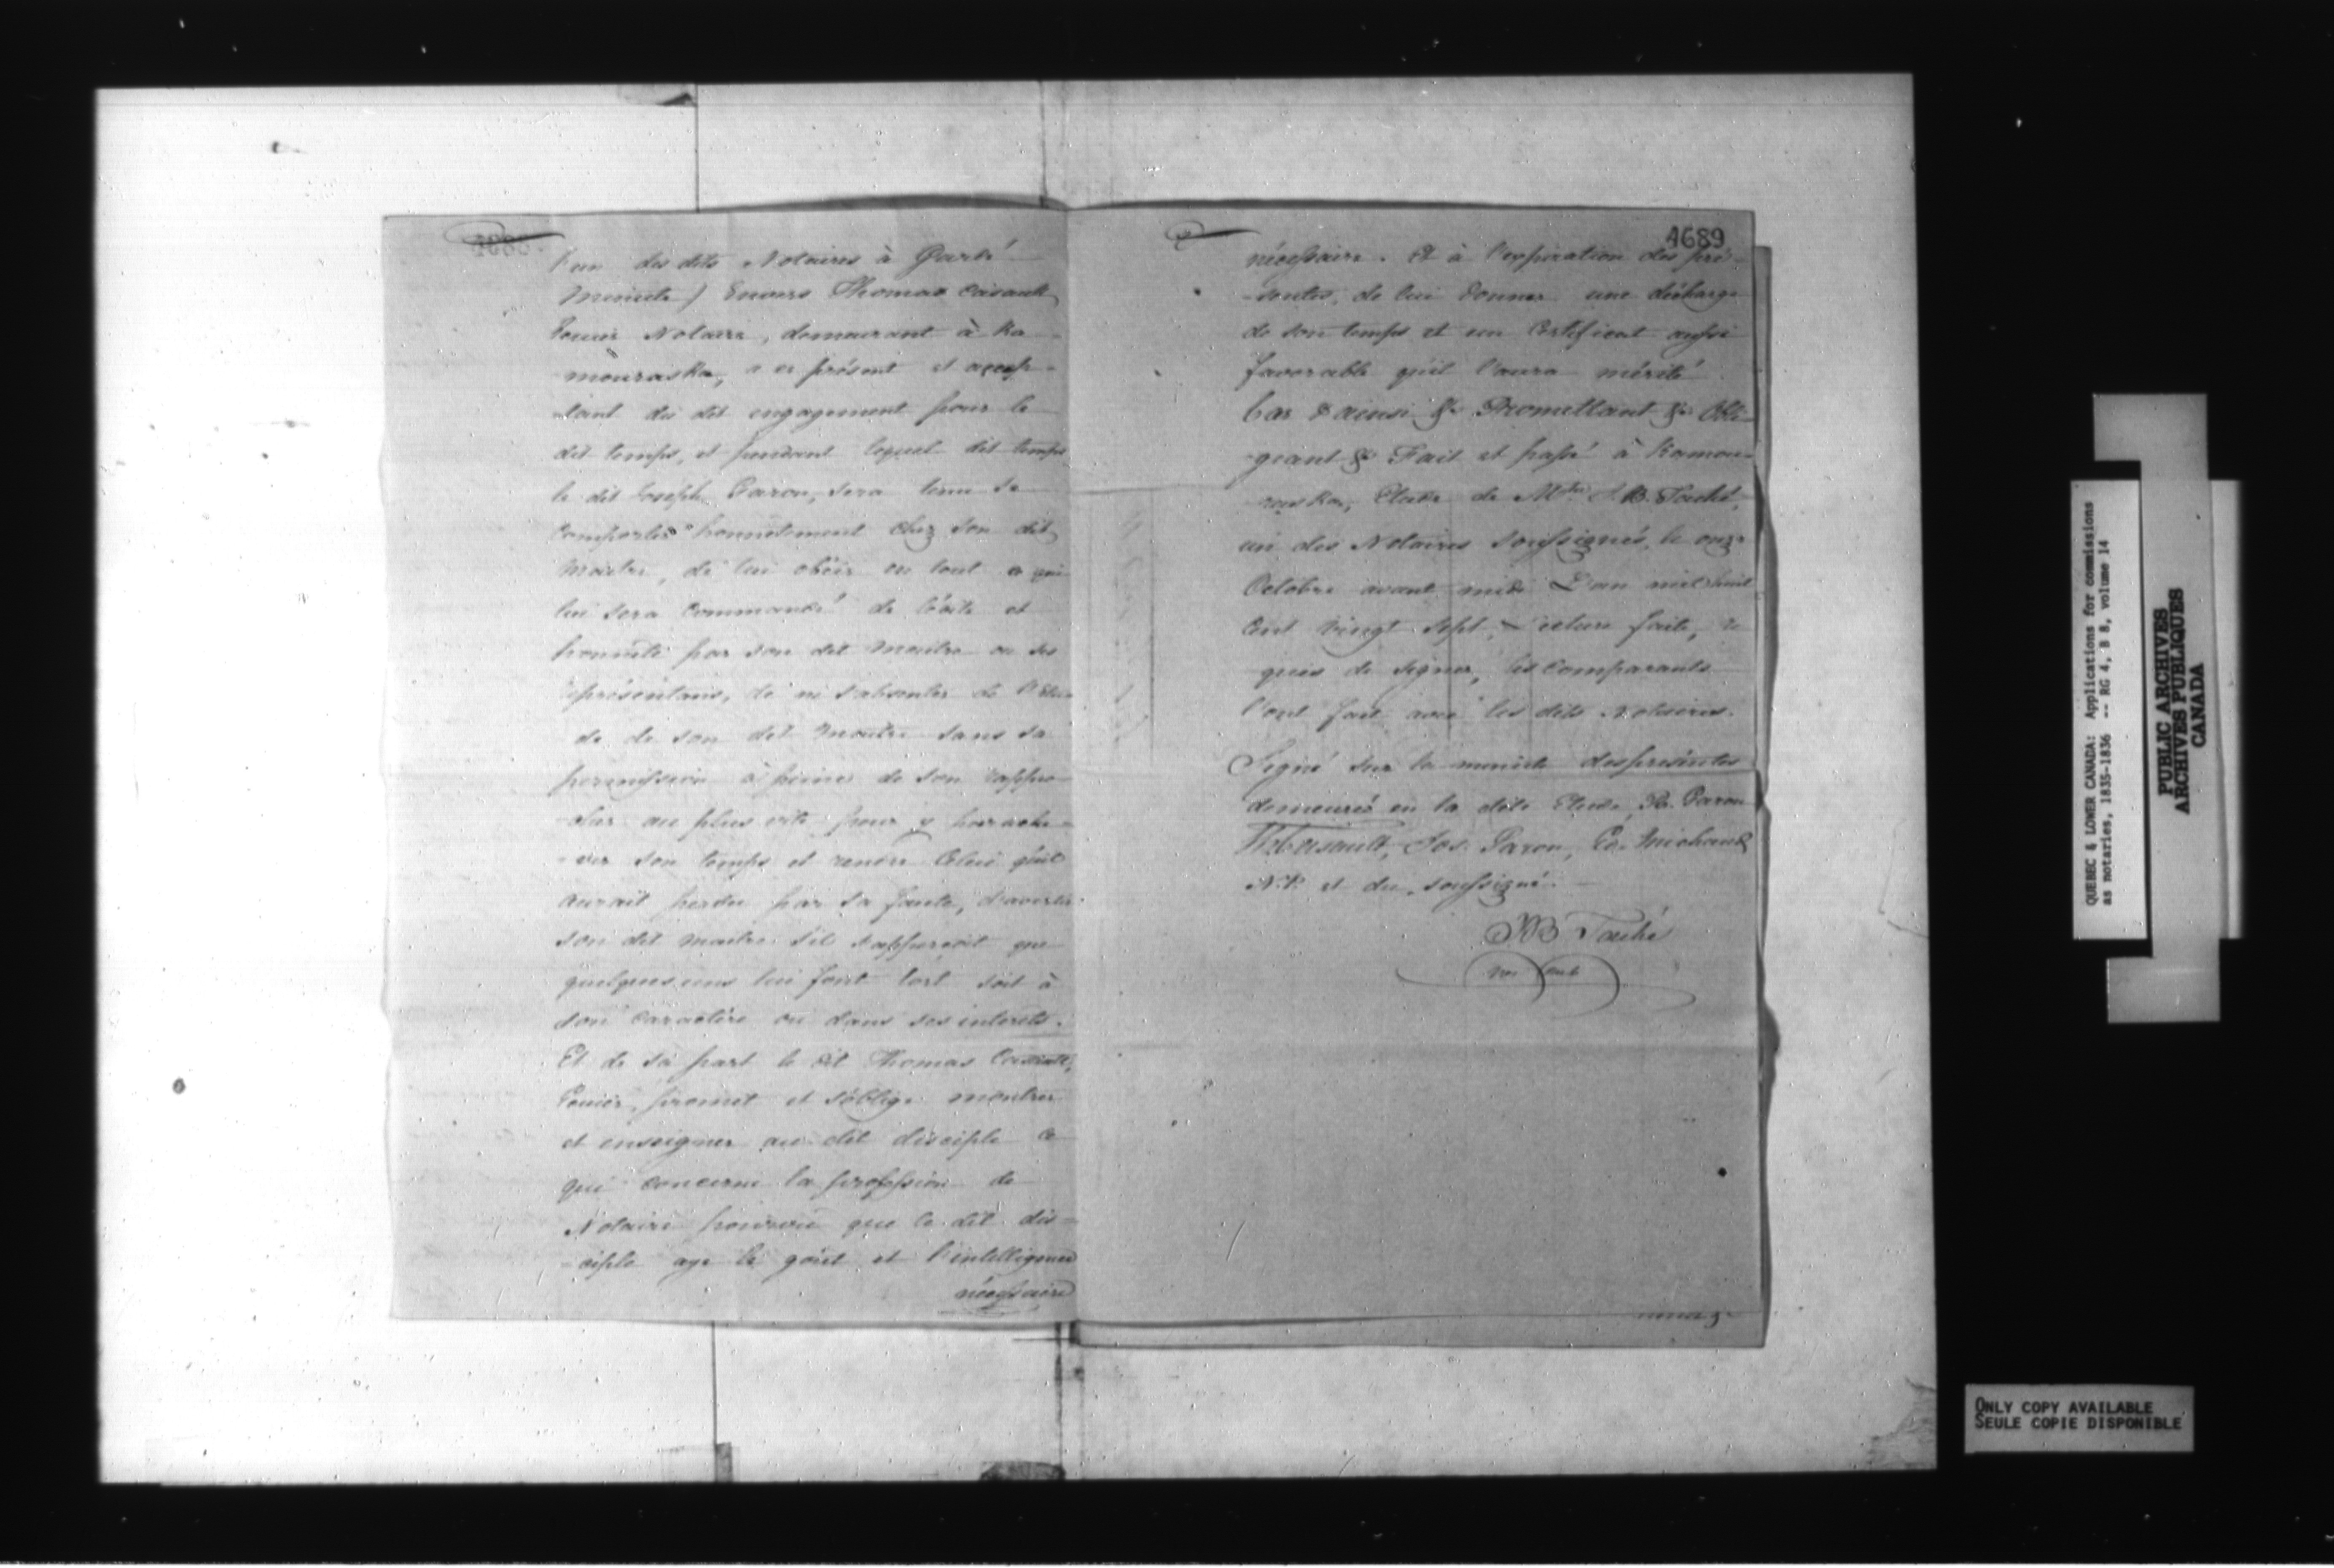 l'un des dits Notaires à Garder
Minute) Envers Thomas Casault
Ecuier Notaire, demeurant à Ka-
-mouraska, a ce présent et accep-
-tant du dit engagement pour le
dit temps, et pendant lequel dit temps
le dit Joseph Garon, sera tenu se
comporter honnetement chez son dit
Maitre, de lui obéir en tout ce qui
lui sera commandé de licite et
honnête par son dit Maitre ou ses
représentans, de ne s'absenter de l'Etu-
de de son dit Maitre sans sa
permission à peine de son rappro-
-cher au plus vite pour y parache-
-ver son temps et rendre Celui qu'il
aurait perdu par sa faute, d'avertir
son dit Maitre s'il s'apperçoit que
quelques uns lui font tort soit à
son caractère ou dans ses interets.
Et de sa part le dit Thomas Casault,
Ecuier, promet et s'oblige montrer
et enseigner au dit disciple ce
qui concerne la profession de
Notaire pourvu que le dit dis-
-ciple aye le goût et l'intelligence
nécessaire
4689
nécessaire. Et à l'expiration des pré-
-sentes, de lui donner une décharge
de son temps et un Certificat aussi
favorable qu'il l'aura mérité.
Car d'ainsi &c Promettant &c Obli-
-geant &c Fait et passé à Kamou-
raska, Etude de Mtre J. B. Taché,
un des Notaires soussignés, le onze
Octobre avant midi L'an mil huit
Cent vingt sept, lecture faite, re
quis de signer, les comparants
l'ont fait avec les dits Notaires.
Signé sur la minute des présentes
demeurée en la dite Etude, Garon
Ths Casault, Jos. Garon, Michaud
N.P. et du soussigné.
JB Taché
Not Pub
QUEBEC & LOWER CANADA: Applications for commissions
as notaries, 1835-1836 -- RG 4, B 8, volume 14
PUBLIC ARCHIVES
ARCHIVES PUBLIQUES
CANADA
ONLY COPY AVAILABLE
SEULE COPIE DISPONIBLE